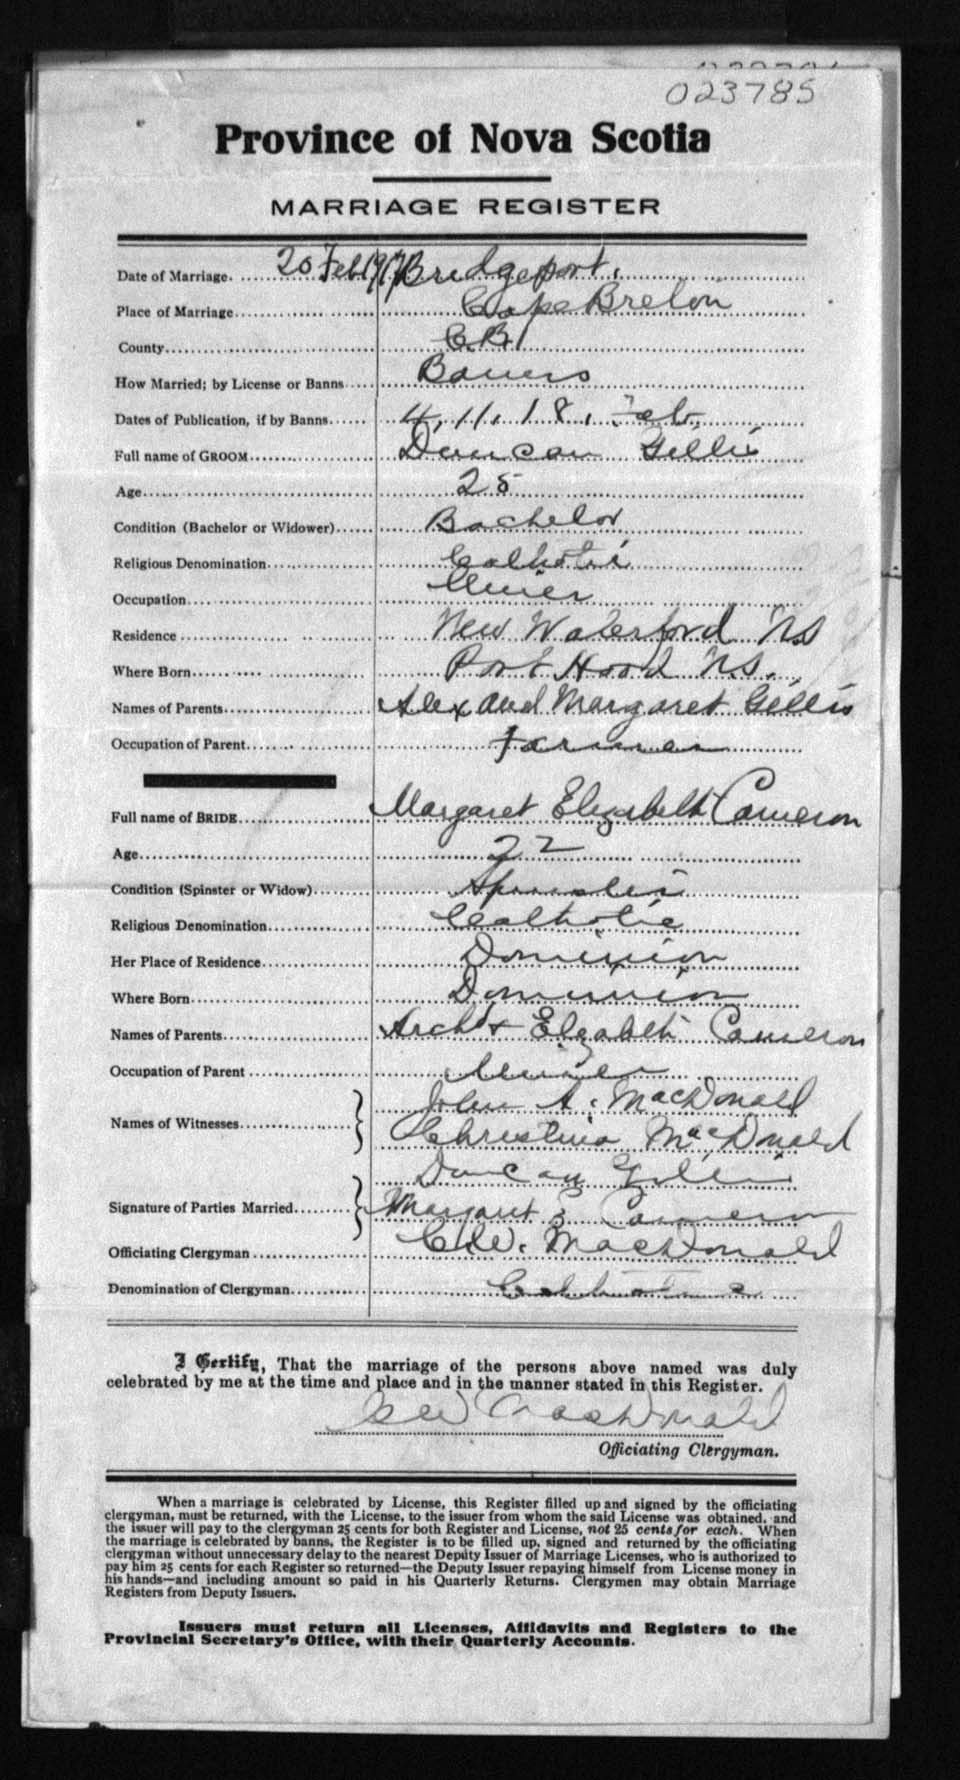 023785
Province of Nova Scotia
MARRIAGE REGISTER
Date of Marriage. 20 Feb 1917 Bridgeport.
Place of Marriage Cape Breton
County C.B.
How Married; by License or Banns Banns
Dates of Publication, if by Banns 4, 11, 18, Feb.
Full name of GROOM Duncan Gillis
Age 25
Condition (Bachelor or Widower) Bachelor
Religious Denomination Catholic
Occupation Miner
Residence New Waterford N.S
Where Born Port Hood N.S.
Names of Parents Alex and Margaret Gillis
Occupation of Parent Farmer
Full name of BRIDE Margaret Elizabeth Cameron
Age 22
Condition (Spinster or Widow) Spinster
Religious Denomination Catholic
Her Place of Residence Dominion
Where Born Dominion
Names of Parents Arch'd & Elizabeth Cameron
Occupation of Parent Miner
Names of Witnesses John A. MacDonald
Christina MacDonald
Duncan Gillis
Signature of Parties Married Margaret E Cameron
Officiating Clergyman C.W. MacDonald
Denomination of Clergyman Catholic
I Certify, That the marriage of the persons above named was duly
celebrated by me at the time and place and in the manner stated in this Register.
C W MacDonald
Officiating Clergyman.
When a marriage is celebrated by License, this Register filled up and signed by the officiating
clergyman, must be returned, with the License, to the issuer from whom the said License was obtained, and
the issuer will pay to the clergyman 25 cents for both Register and License, not 25 cents for each. When
the marriage is celebrated by banns, the Register is to be filled up, signed and returned by the officiating
clergyman without unnecessary delay to the nearest Deputy Issuer of Marriage Licenses, who is authorized to
pay him 25 cents for each Register so returned—the Deputy Issuer repaying himself from License money in
his hands—and including amount so paid in his Quarterly Returns. Clergymen may obtain Marriage
Registers from Deputy Issuers.
Issuers must return all Licenses, Affidavits and Registers to the
Provincial Secretary's Office, with their Quarterly Accounts.